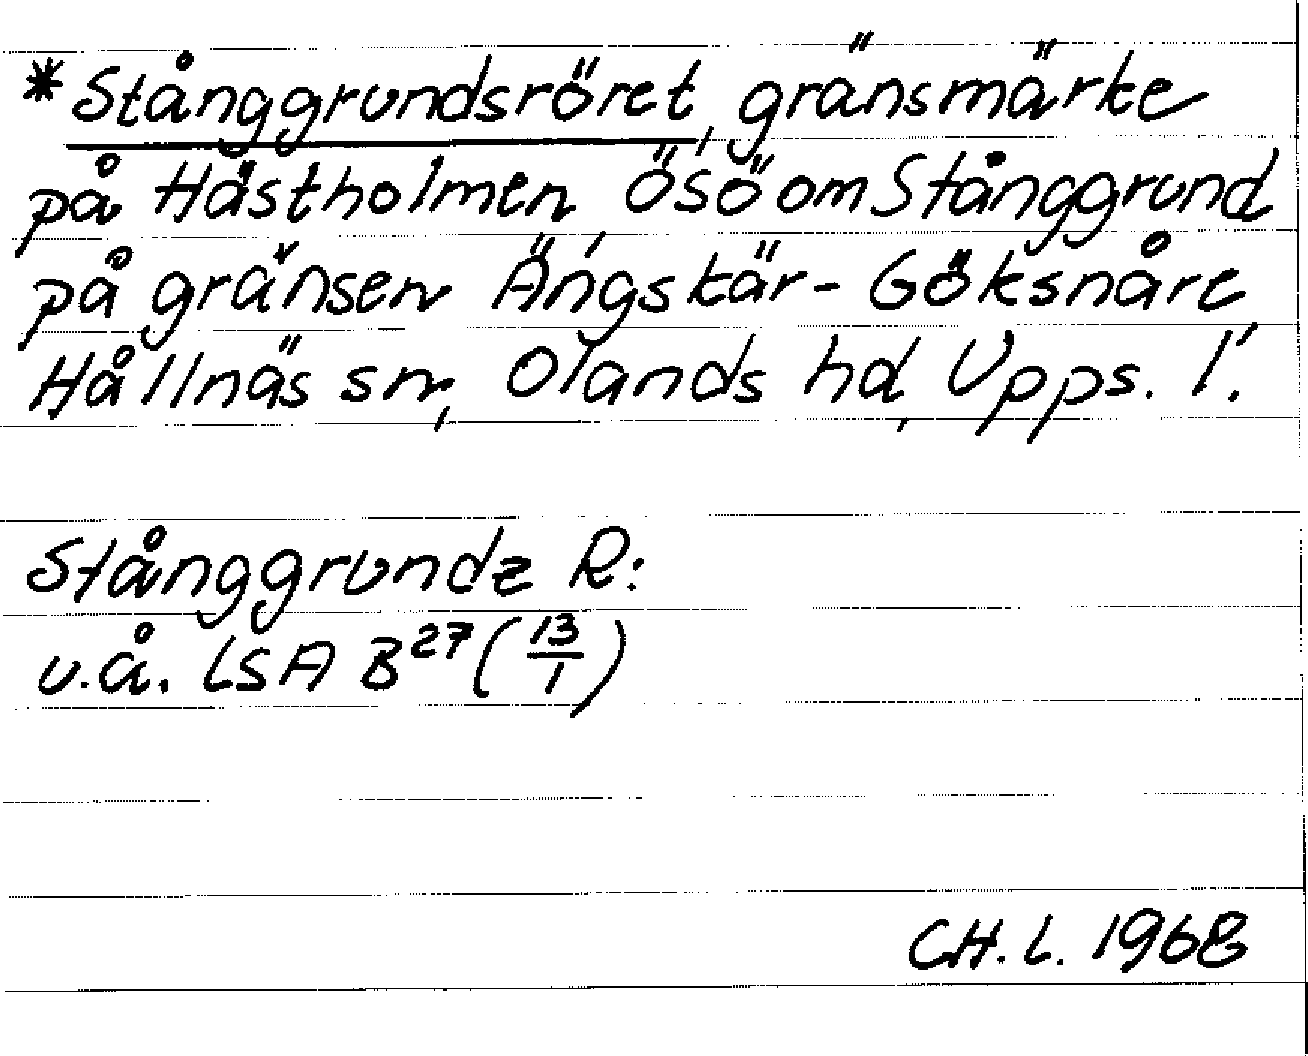 *Stånggrundsröret, gränsmärke
på Hästholmen ÖSÖ om Stånggrund
på gränsen Ängskär - Göksnåre,
Hållnäs sn, Olands hd, Upps. l.
Stånggrundz R:
u.å. LSA B²⁷ (13/1)
CH. L. 1968